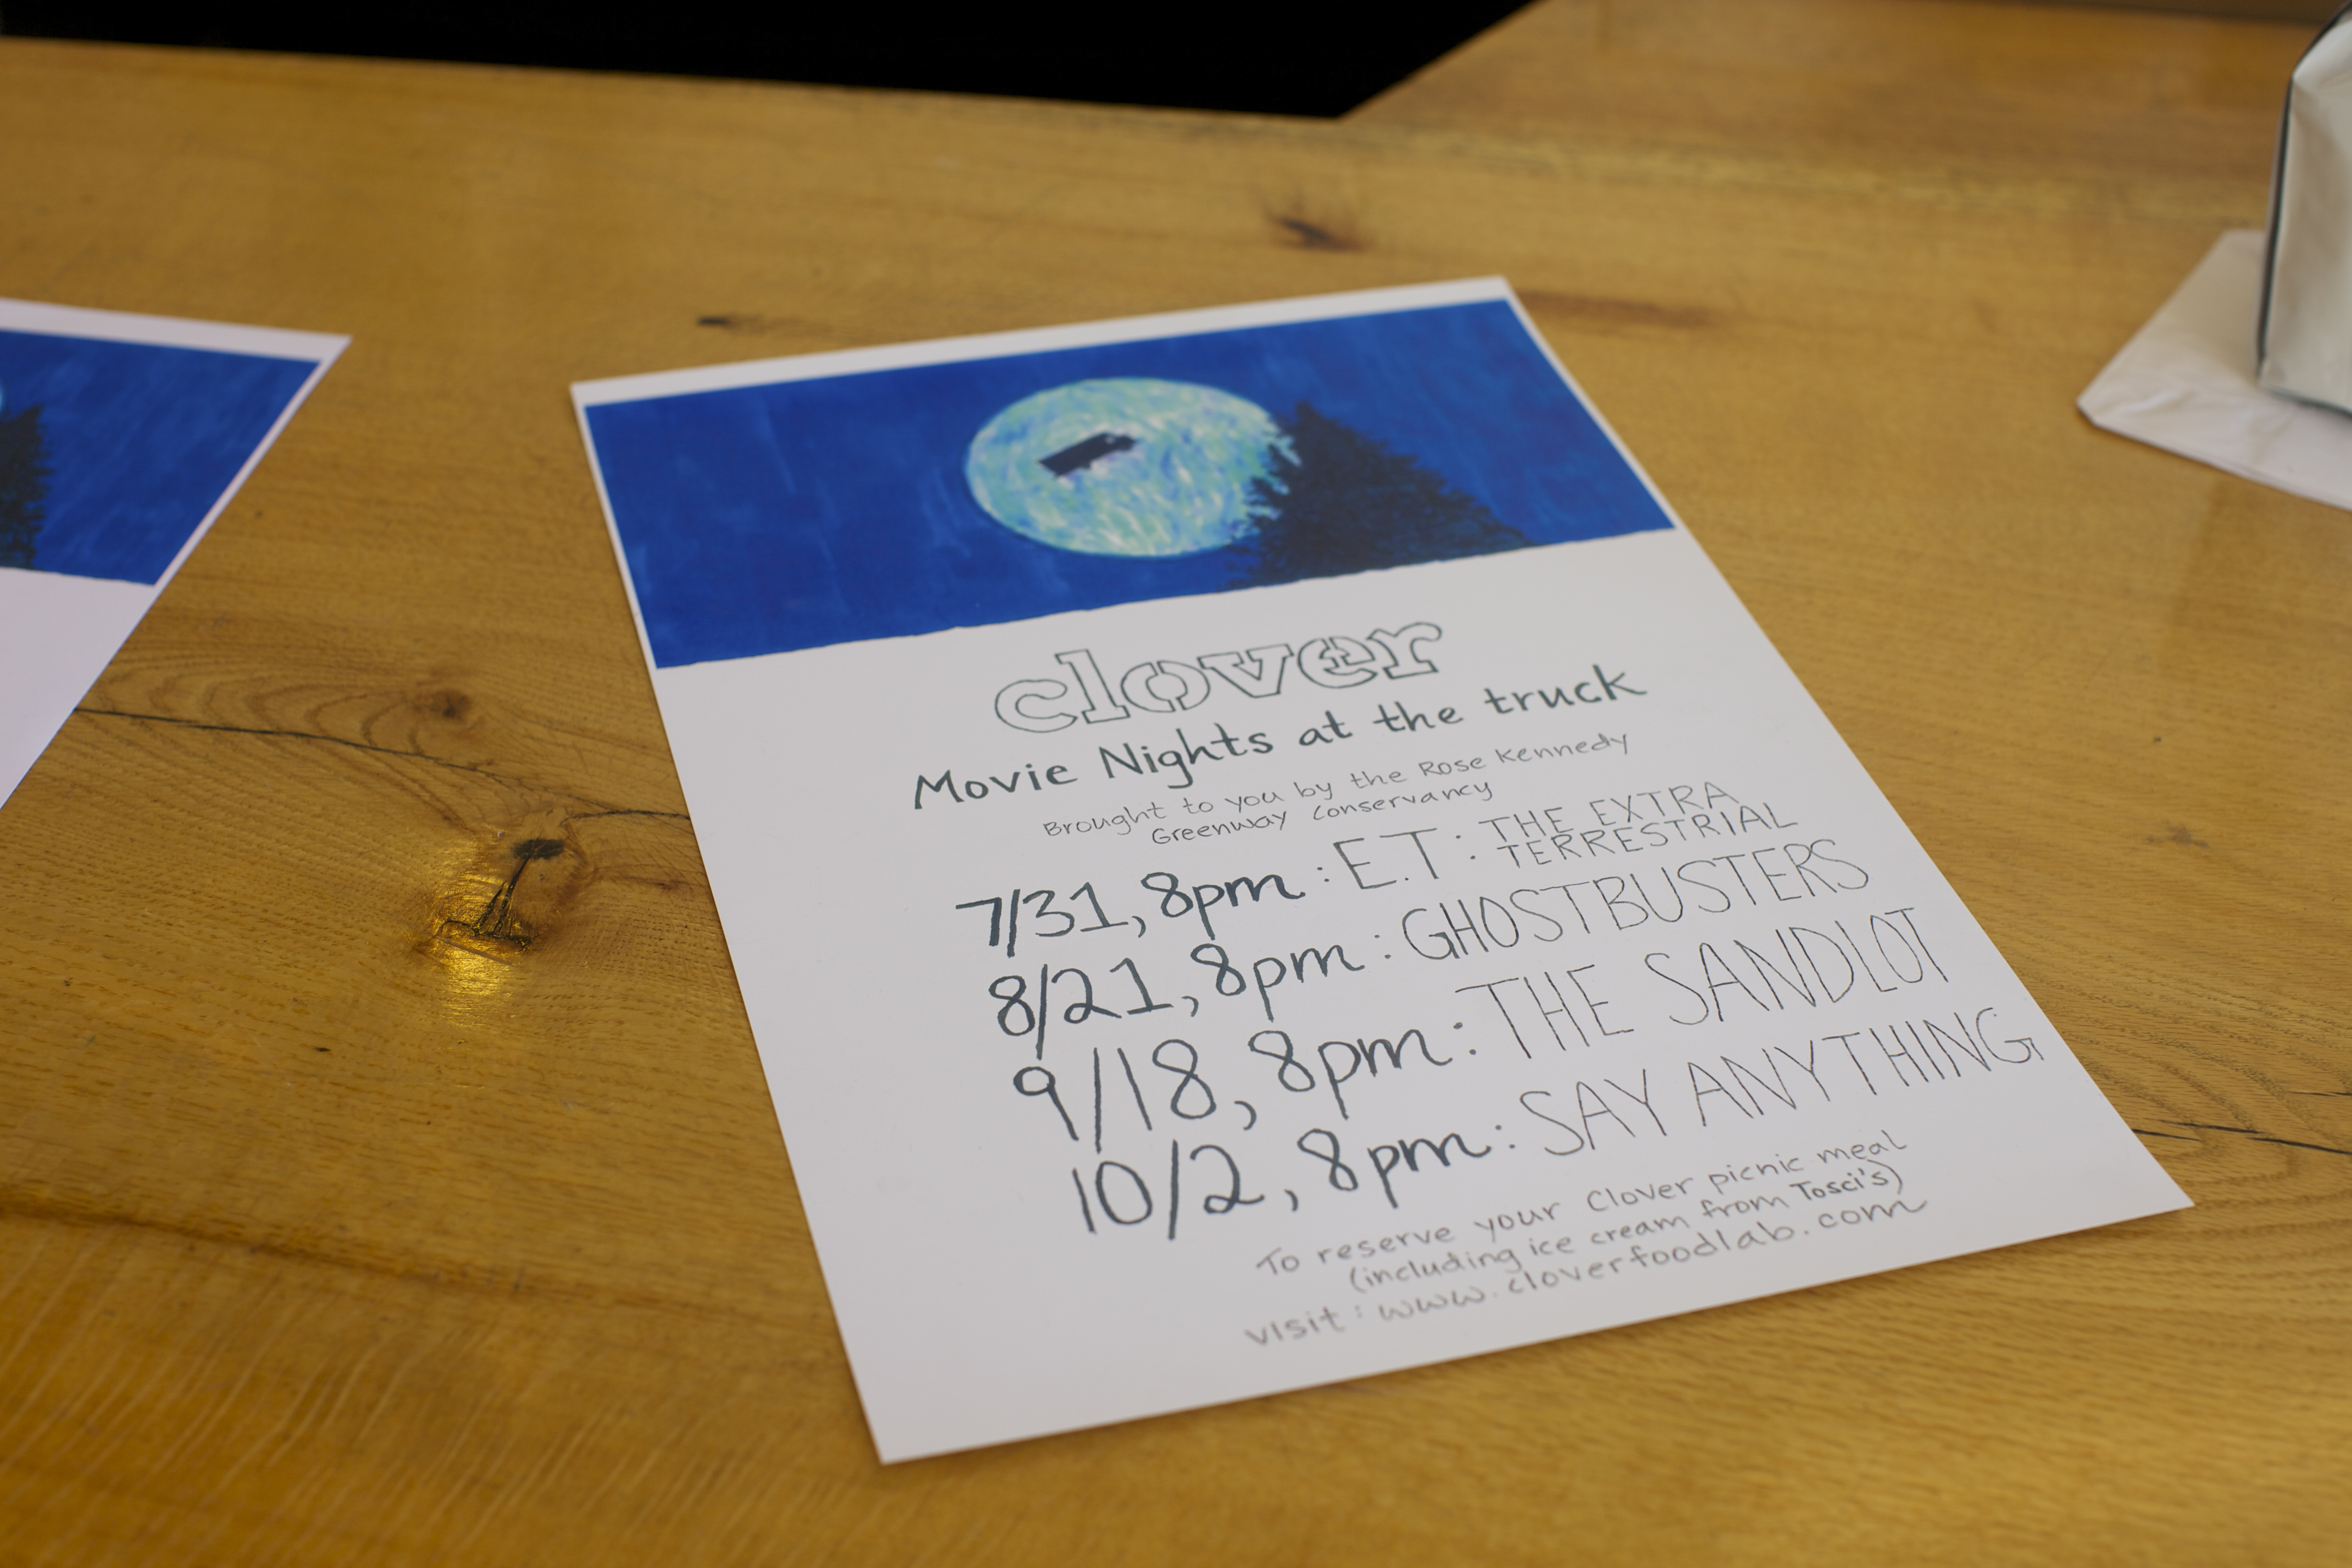 clover
Movie Nights at the truck
Brought to you by the Rose Kennedy
Greenway Conservancy
7/31, 8pm : E.T : THE EXTRA
TERRESTRIAL
8/21, 8pm : GHOSTBUSTERS
9/18, 8pm : THE SANDLOT
10/2, 8pm : SAY ANYTHING
To reserve your Clover picnic meal
(including ice cream from Tosci's)
visit : www.cloverfoodlab.com